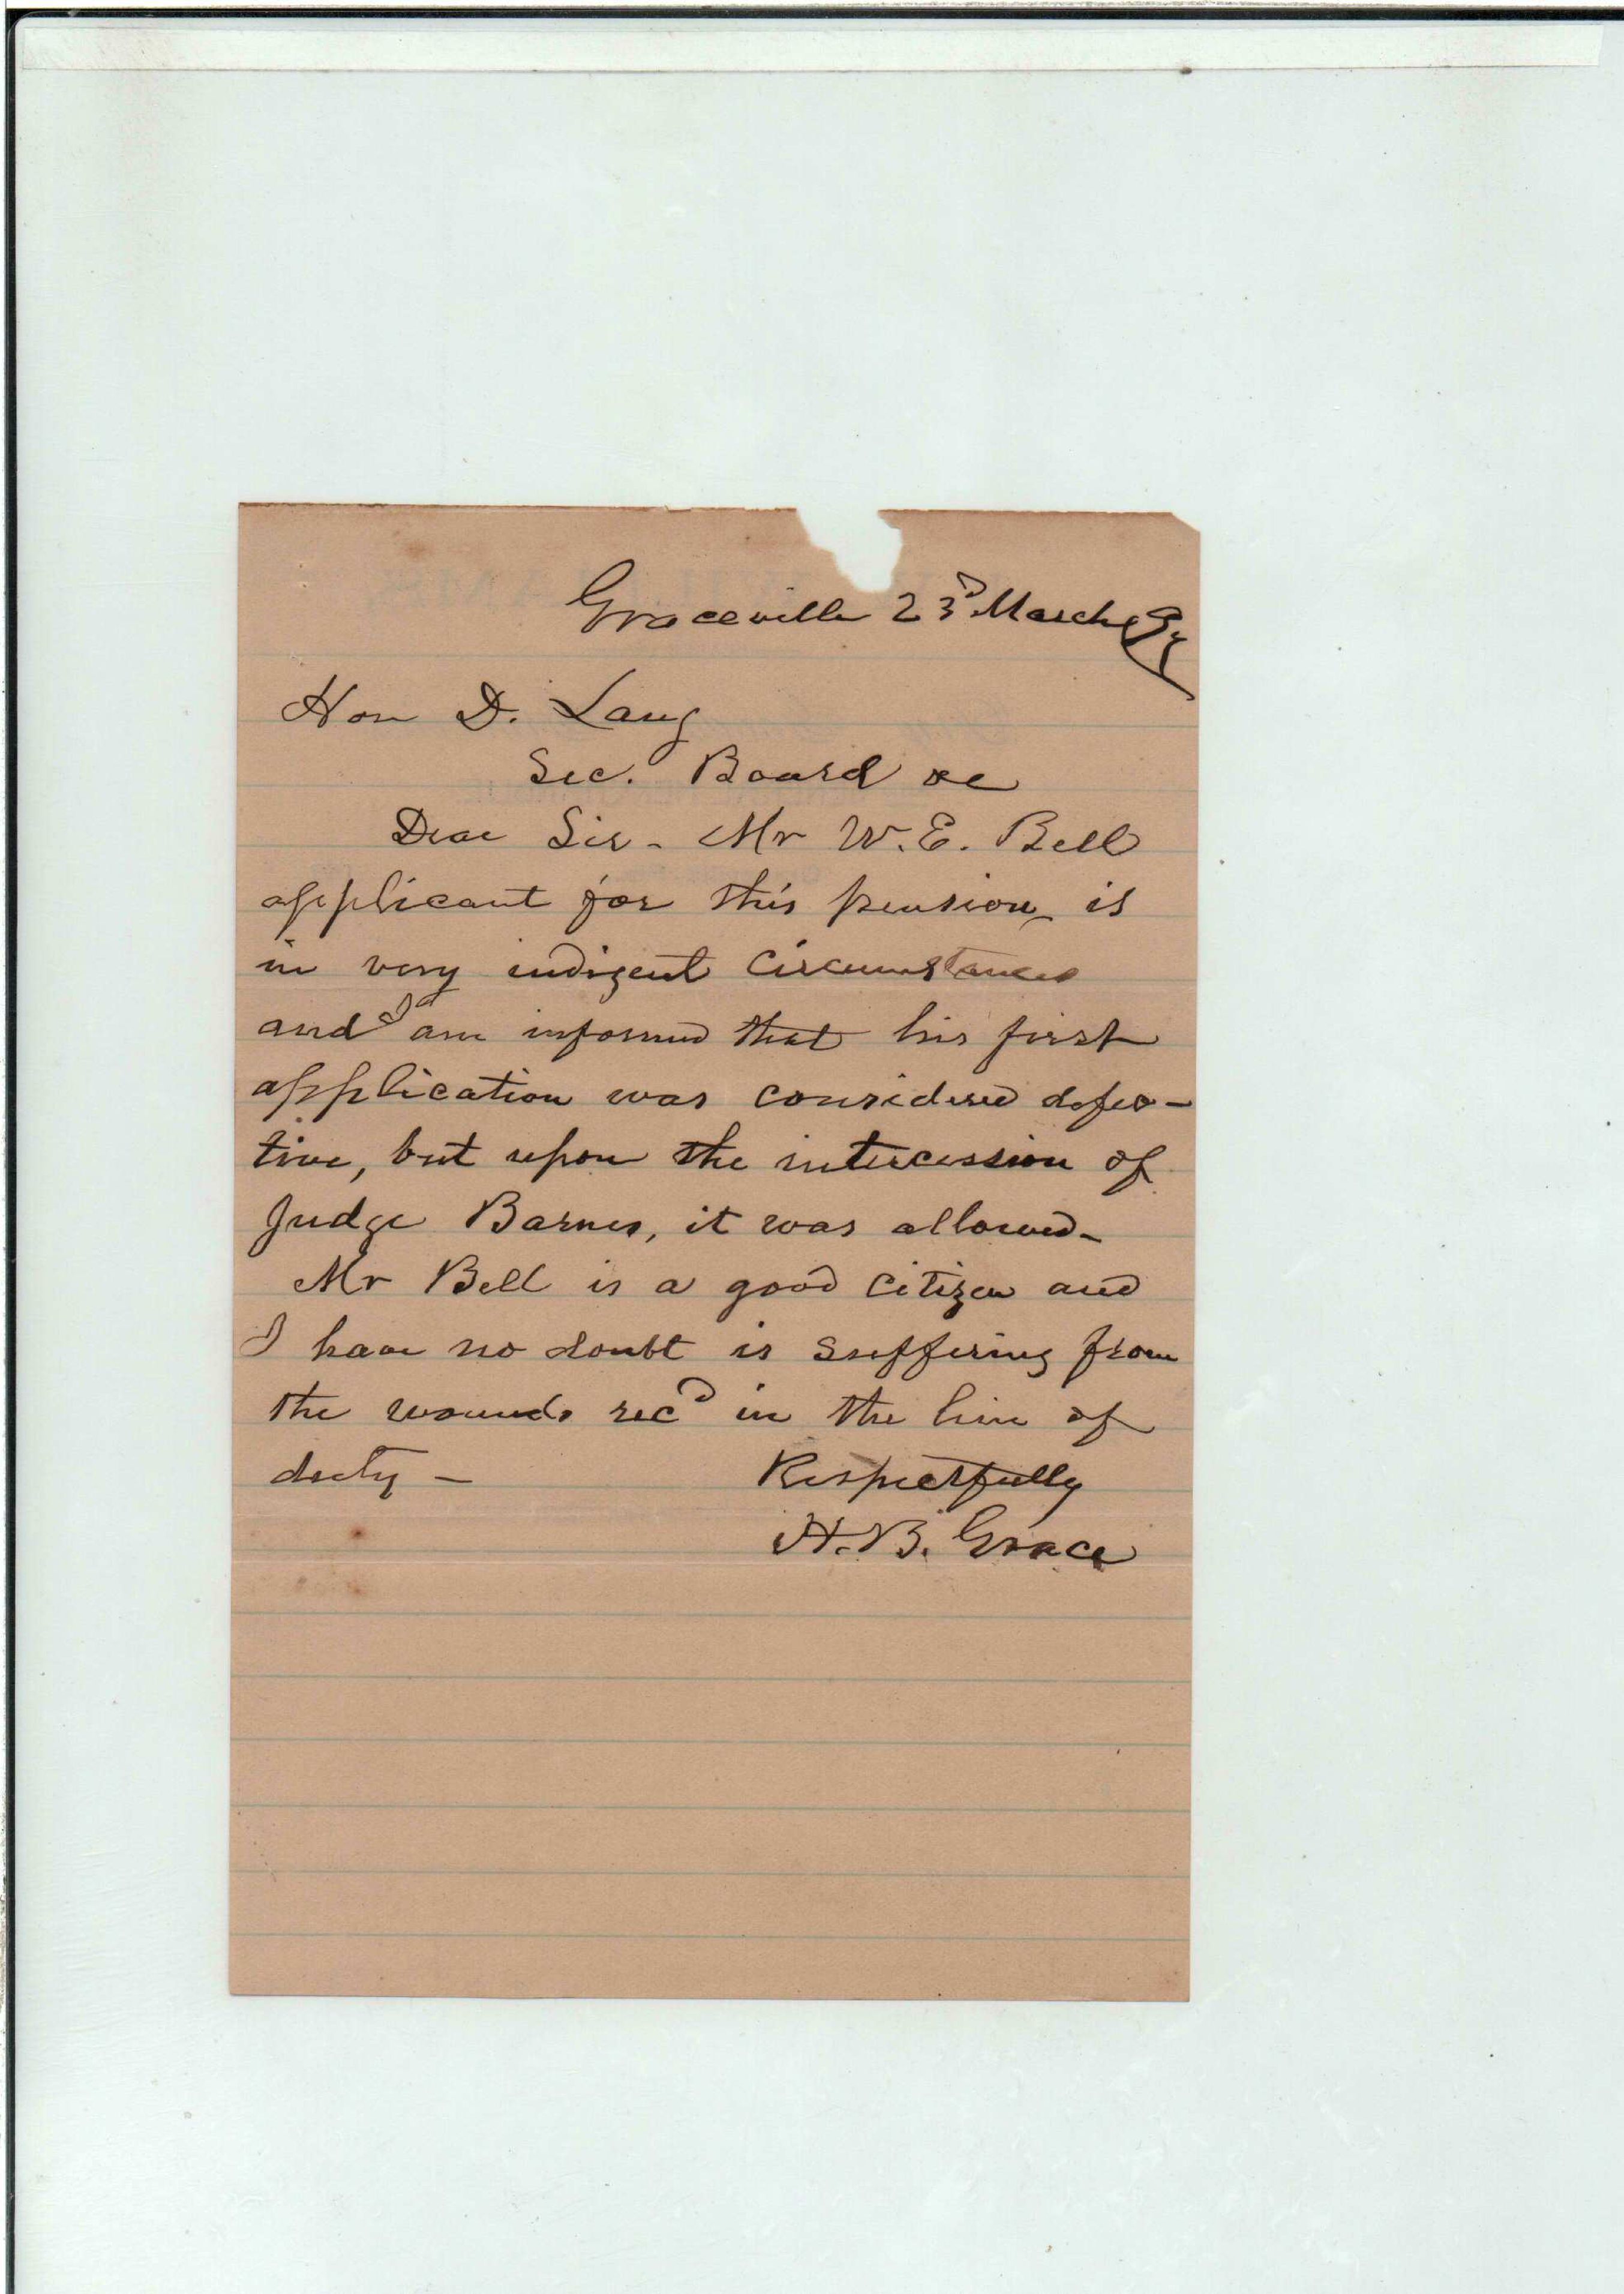 Graceville 23d March
Hon D. Lang
Sec. Board &c
Dear Sir - Mr W. E. Bell
applicant for this pension is
in very indigent circumstances
and I am informed that his first
application was considered defec-
tive, but upon the intercession of
Judge Barnes, it was allowed -
Mr Bell is a good citizen and
I have no doubt is suffering from
the wounds recd in the line of
duty - Respectfully
H. B. Grace